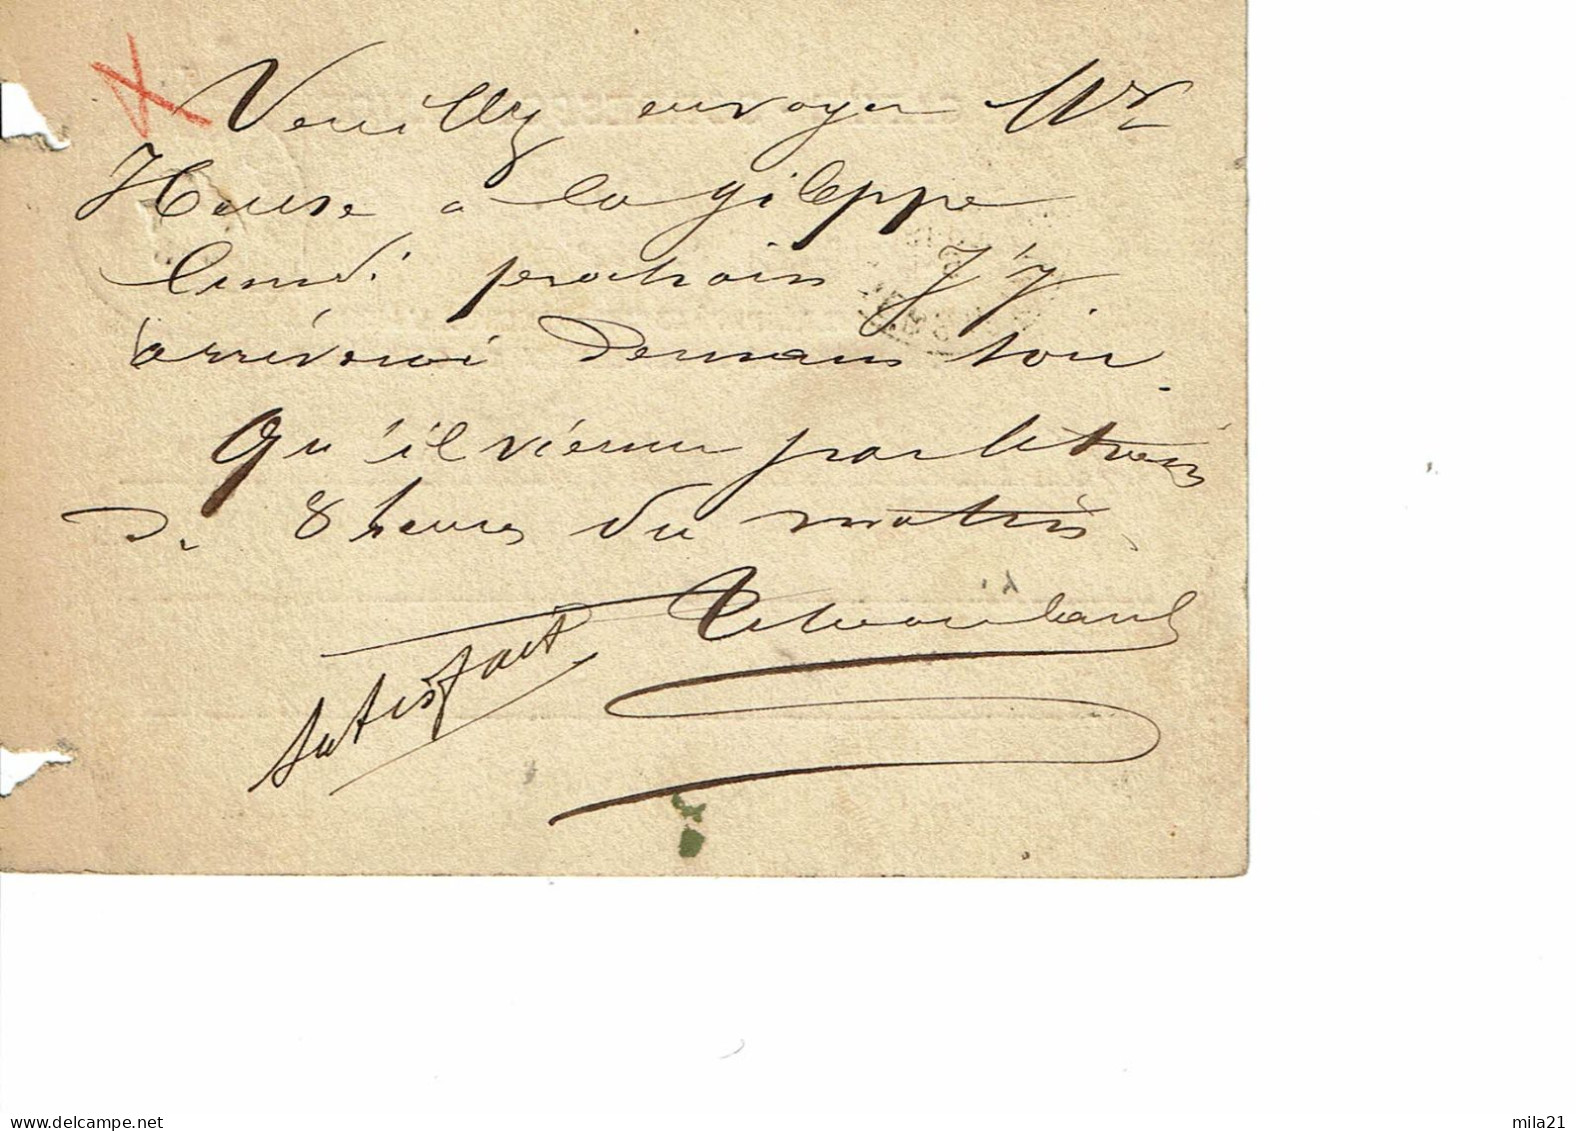 Veuillez envoyer Mr
House a la gileppe
lundi prochain J'y
arriverai demain soir.
Qu'il vienne par le train
De 8 heures du matin.
satisfait
mila21